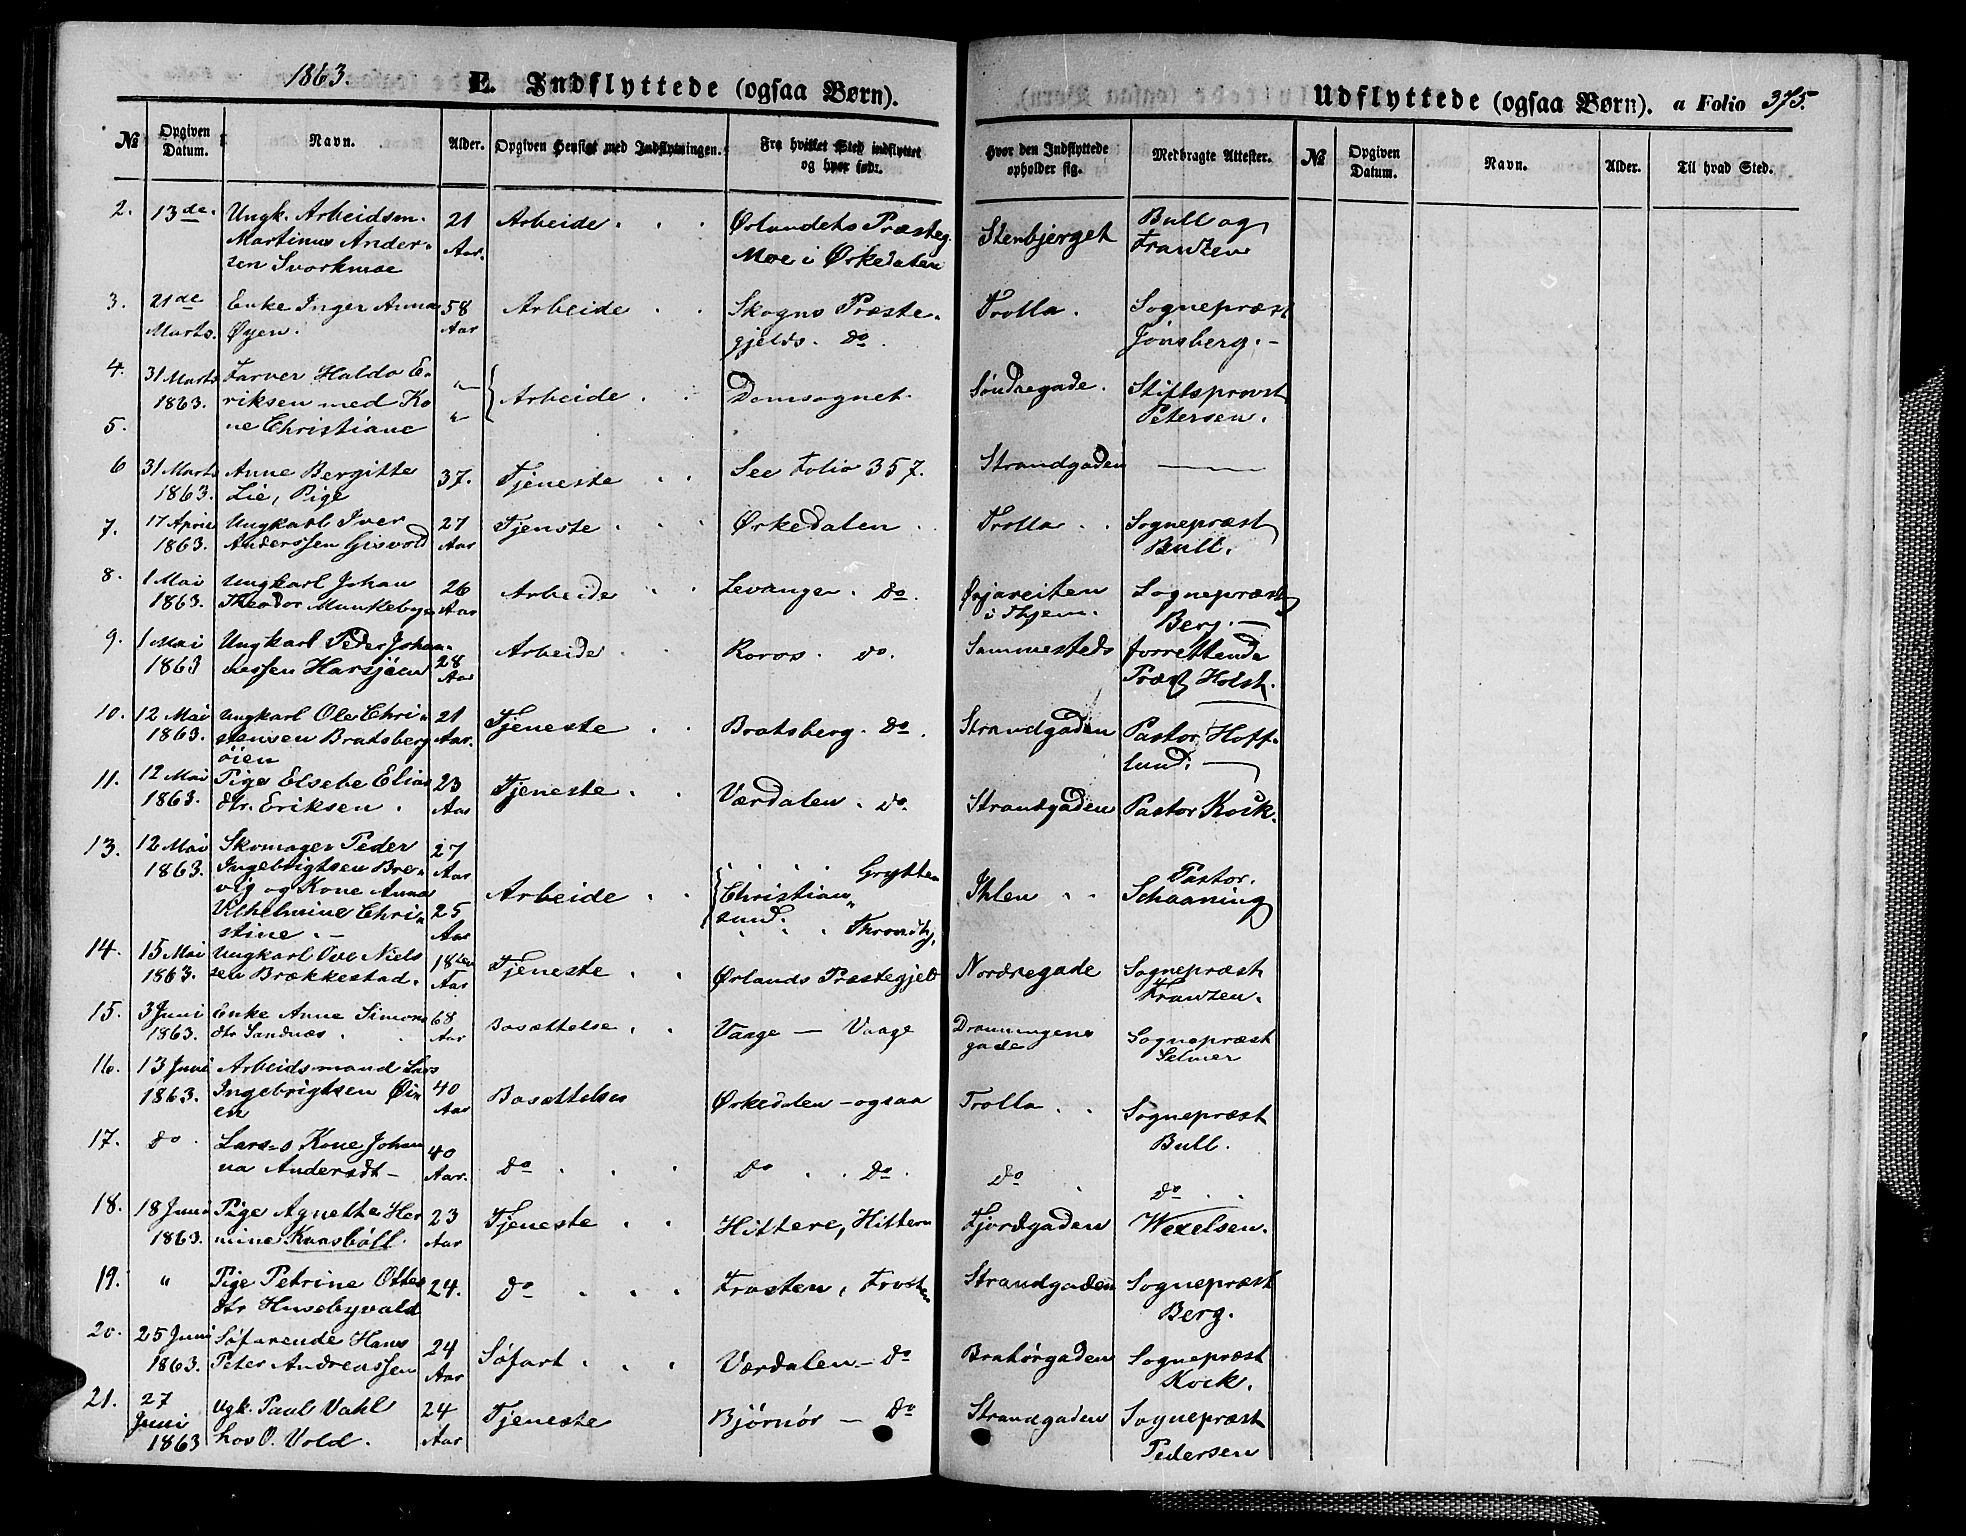 1863.
E. Indflyttede (ogsaa Børn).
№
Opgiven
Datum.
Navn.
Alder.
Opgiven Hensigt med Indflytningen.
Fra hvilket Sted indflyttet
og hvor født.
2.
13de.
Ungk. Arbeidsm.
Martinus Ander-
sen Svorkmoe
21
Aar.
Arbeide
Ørlandets Præsteg.
Moe i Ørkedalen
3.
21de
Marts.
Enke Inger Anna
Øyen.
58
Aar
Arbeide
Skogns Præste-
gjelds. do.
4.
31 Marts
1863.
Farver Haldo E-
riksen med Ko
5.
ne Christiane
"
"
Arbeide
Domsognet.
6
31 Marts
1863.
Anne Bergitte
Lie, Pige
37.
Tjeneste
See Folio 357.
7.
17 April
1863.
Ungkarl Iver
Anderssen Gisvold
27
Aar
Tjenste
Ørkedalen
8.
1 Mai
1863.
Ungkarl Johan
Theodor Munkebye
26
Aar
Arbeide
Levanger. do.
9.
1 Mai
1863
Ungkarl Peder Johan-
nessen Harsjöen
28
Aar
Arbeide
Roros. do.
10.
12 Mai
1863.
Ungkarl Ole Chri-
stensen Bratsberg
öien
21
Aar.
Tjeneste
Bratsberg. do.
11.
12 Mai
1863.
Pige Elsebe Elias
dtr. Eriksen.
23
Aar
Tjeneste
Værdalen. do.
13.
12 Mai
1863.
Skomager Peder
Ingebrigtsen Bre-
vig og Kone Anna
Vilhelmine Chri-
stine.
27
Aar
25
Aar
Arbeide
Grytten
Christian
sund.
Thronhj.
14.
15 Mai
1863.
Ungkarl Ove Niels
sen Brækkestad.
18
Aar
Tjeneste
Ørlands Præstegjeld
15.
3 Juni
1863.
Enke Anne Simons
dtr Sandnæs
68
Aar
Bosættelse
Vaage — Vaage
16.
13 Juni
1863.
Arbeidsmand Lars
Ingebrigtsen Øi-
en
40
Aar
Bosættelse
Ørkedalen — ogsaa
17.
do
Lars's Kone Johan
na Andersdt —
40
Aar.
do
do do.
18.
18 Juni
1863.
Pige Agnette Her
mine Kaasböll.
23
Aar
Tjeneste
Hittere, Hitteren
19.
"
Pige Petrine Otters
dtr Husebyvald
24.
do
Frosten, Frosten
20.
25 Juni
1863.
Söfarende Hans
Peter Andreassen
24
Aar
Söfart
Værdalen — do
21.
27
Juni
1863
Ugk. Paul Vahl
O. Vold.
24
Aar
Tjeneste
Bjørnør — do
Udflyttede (ogsaa Børn). a Folio 375.
Hvor den Indflyttede
opholder sig.
Medbragte Attester.
№
Opgiven
Datum.
Navn.
Alder.
Til hvad Sted.
Stenbjerget
Bull og
Frantzen
Trolla.
Sognepræst
Jönsberg.
Söndregade.
Stiftsprovst
Petersen.
Strandgaden
Trolla
Sognepræst
Bull.
i Thjem.
Sognepræst
Berg.
Sammesteds
forrettende
Præst Holst.
Strandgaden
Pastor Hoff-
lund.
Strandgaden
Pastor Kock.
Ihlen
Pastor
Schaaning
Nordregade
Sognepræst
Frantzen.
Dronningens
gade
Sognepræst
Selmer
Trolla
Sognepræst
Bull.
do
do
Fjordgaden
Wexelsen.
Strandgaden
Sognepræst
Berg.
Bratörgaden
Sognepræst
Kock.
Strandgaden
Sognepræst
Pedersen